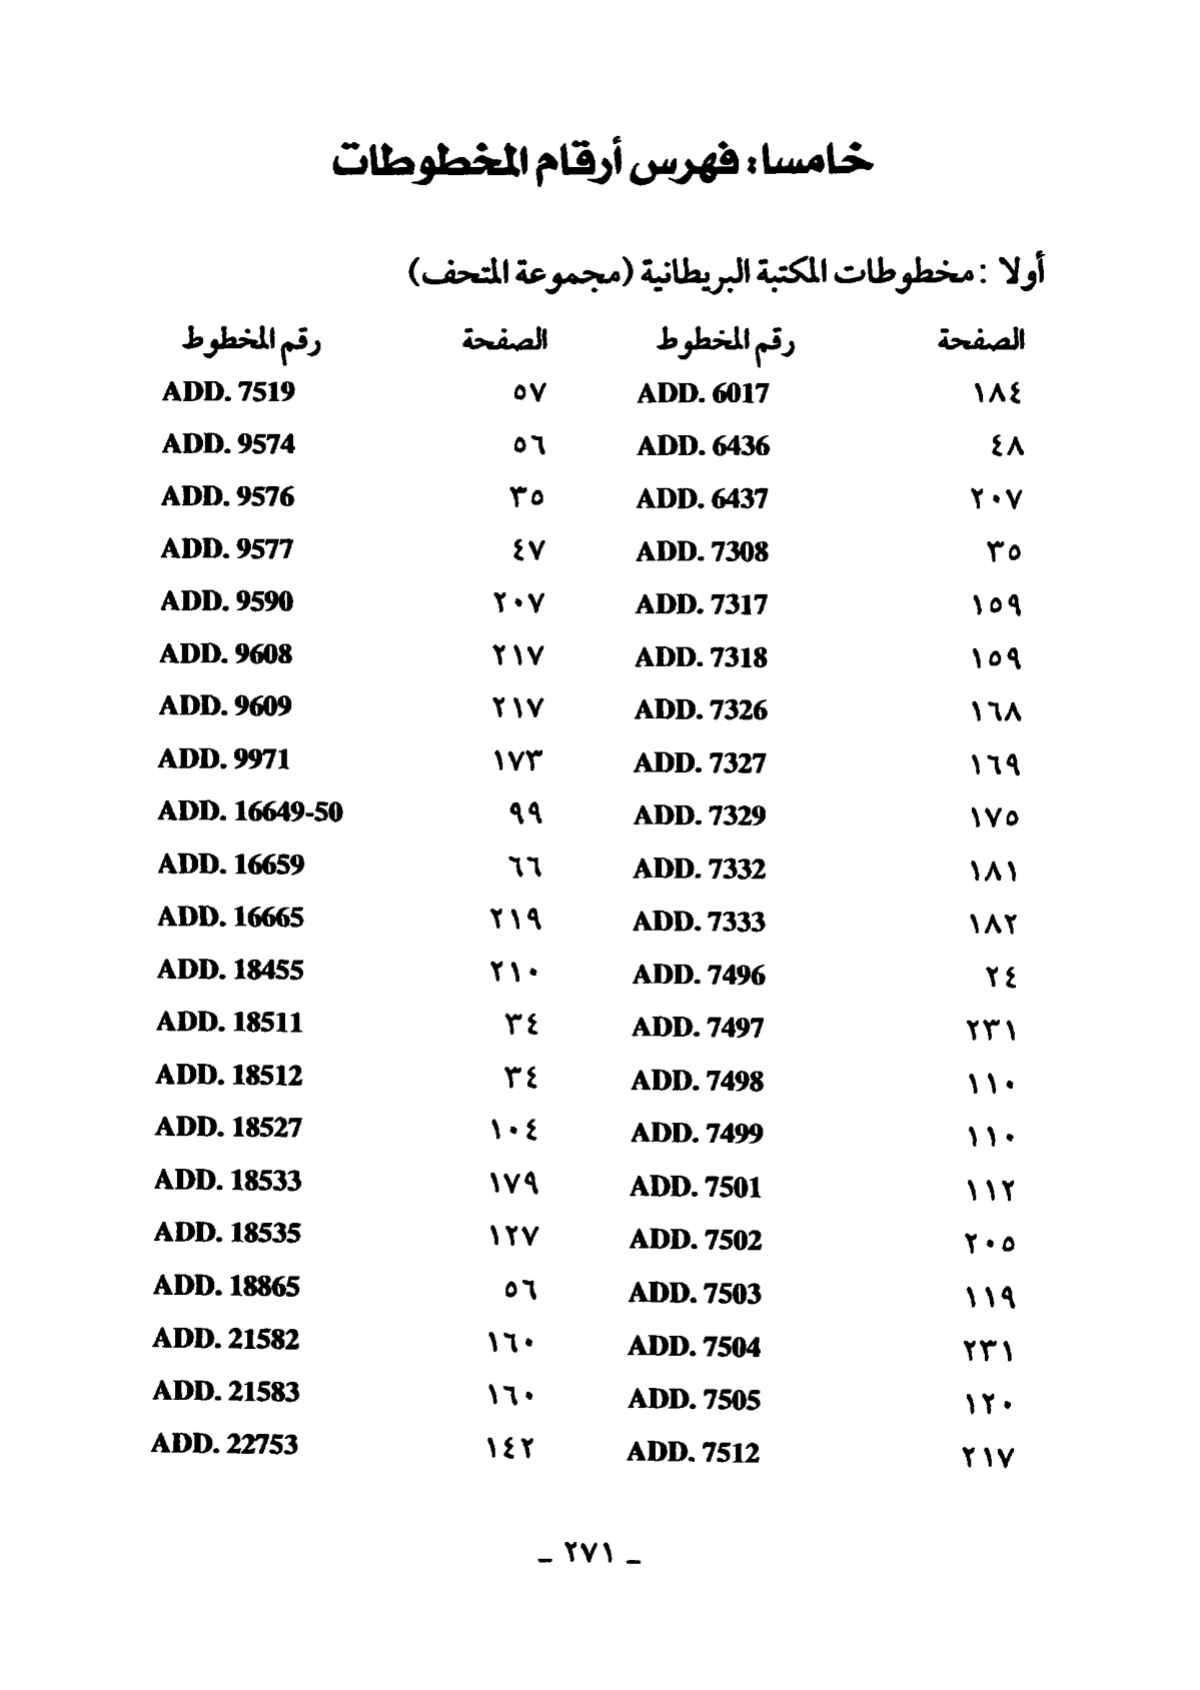 خامسا: فهرس أرقام المخطوطات
أولا : مخطوطات المكتبة البريطانية (مجموعة المتحف)
الصفحة رقم المخطوط الصفحة رقم المخطوط
١٨٤ ADD. 6017 ٥٧ ADD. 7519
٤٨ ADD. 6436 ٥٦ ADD. 9574
٢٠٧ ADD. 6437 ٣٥ ADD. 9576
٣٥ ADD. 7308 ٤٧ ADD. 9577
١٥٩ ADD. 7317 ٢٠٧ ADD. 9590
١٥٩ ADD. 7318 ٢١٧ ADD. 9608
١٦٨ ADD. 7326 ٢١٧ ADD. 9609
١٦٩ ADD. 7327 ١٧٣ ADD. 9971
١٧٥ ADD. 7329 ٩٩ ADD. 16649-50
١٨١ ADD. 7332 ٦٦ ADD. 16659
١٨٢ ADD. 7333 ٢١٩ ADD. 16665
٢٤ ADD. 7496 ٢١٠ ADD. 18455
٢٣١ ADD. 7497 ٣٤ ADD. 18511
١١٠ ADD. 7498 ٣٤ ADD. 18512
١١٠ ADD. 7499 ١٠٤ ADD. 18527
١١٢ ADD. 7501 ١٧٩ ADD. 18533
٢٠٥ ADD. 7502 ١٢٧ ADD. 18535
١١٩ ADD. 7503 ٥٦ ADD. 18865
٢٣١ ADD. 7504 ١٦٠ ADD. 21582
١٢٠ ADD. 7505 ١٦٠ ADD. 21583
٢١٧ ADD. 7512 ١٤٢ ADD. 22753
_ ٢٧١ _